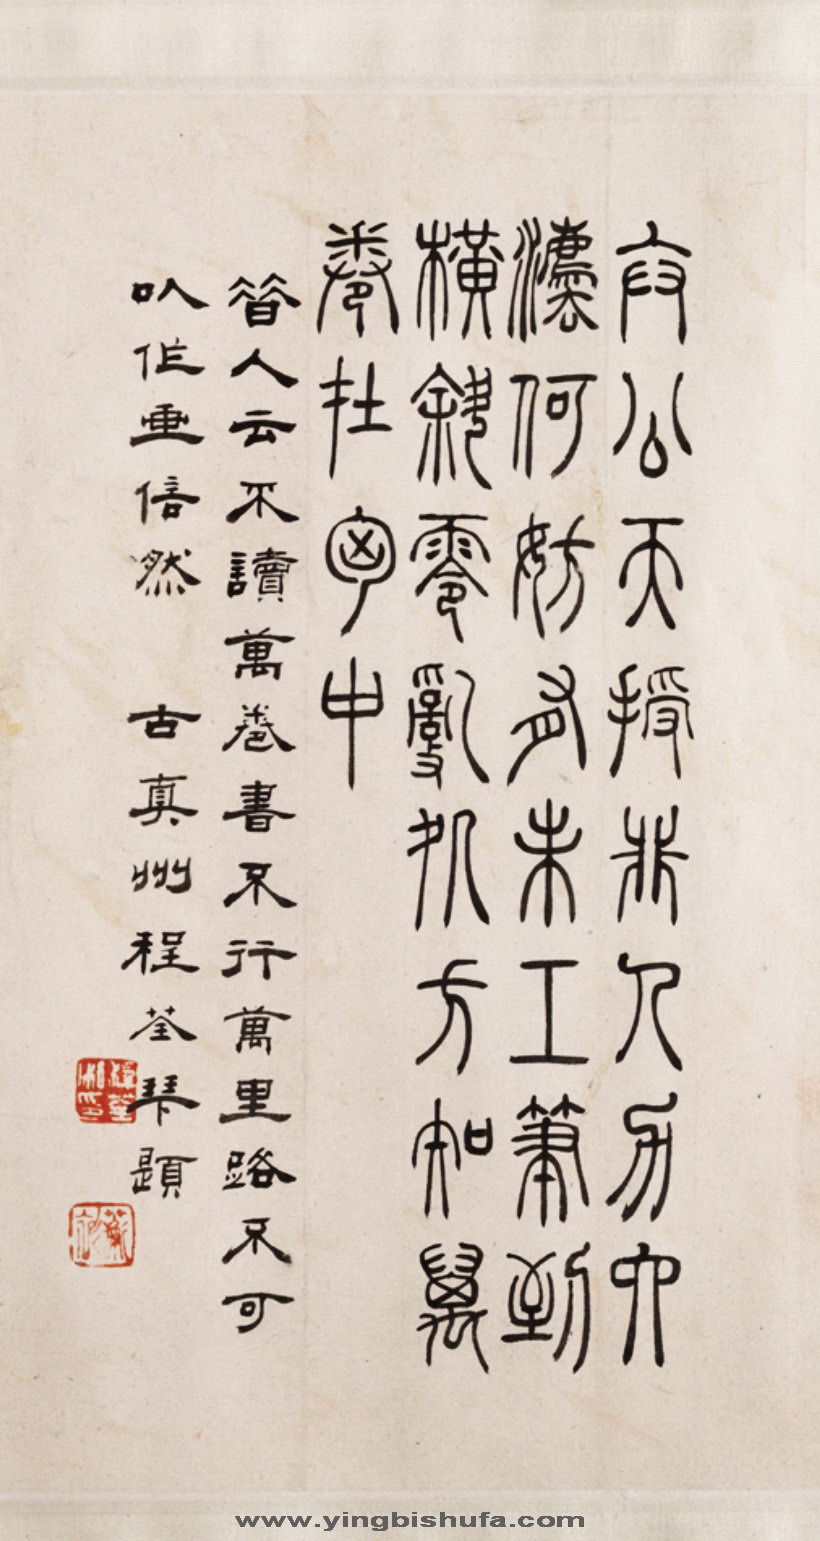 公天授非人六
灋何妨有未工筆到
橫斜零亂処方知萬
卷在胸中
昔人云不讀萬卷書不行萬里路不可
以作畫信然 古真州程荃琴題
程荃私印
www.yingbishufa.com